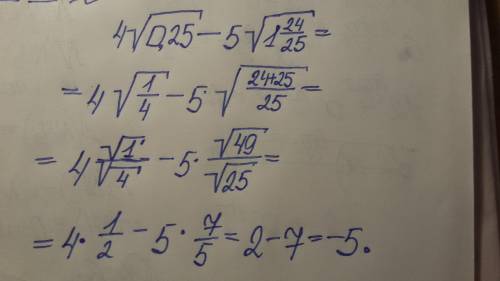 4√0,25 − 5√1 24/25 =
= 4√1/4 − 5·√(24+25)/25 =
= 4 √1/√4 − 5· √49/√25 =
= 4· 1/2 − 5· 7/5 = 2 − 7 = −5.